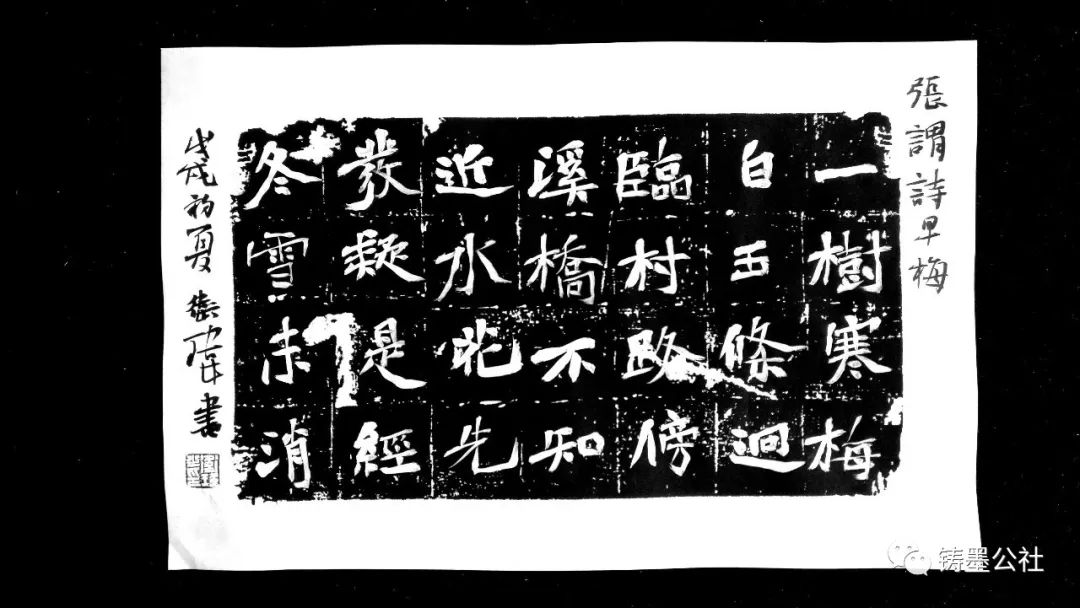 張謂詩早梅
一樹寒梅
白玉條迥
臨村路傍
溪橋不知
近水花先
發疑是經
冬雪未消
戊戌初夏 書
铸墨公社